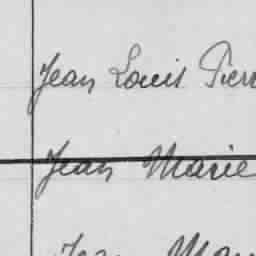 Jean Louis Pierr
Jean Marie
Jean Mar